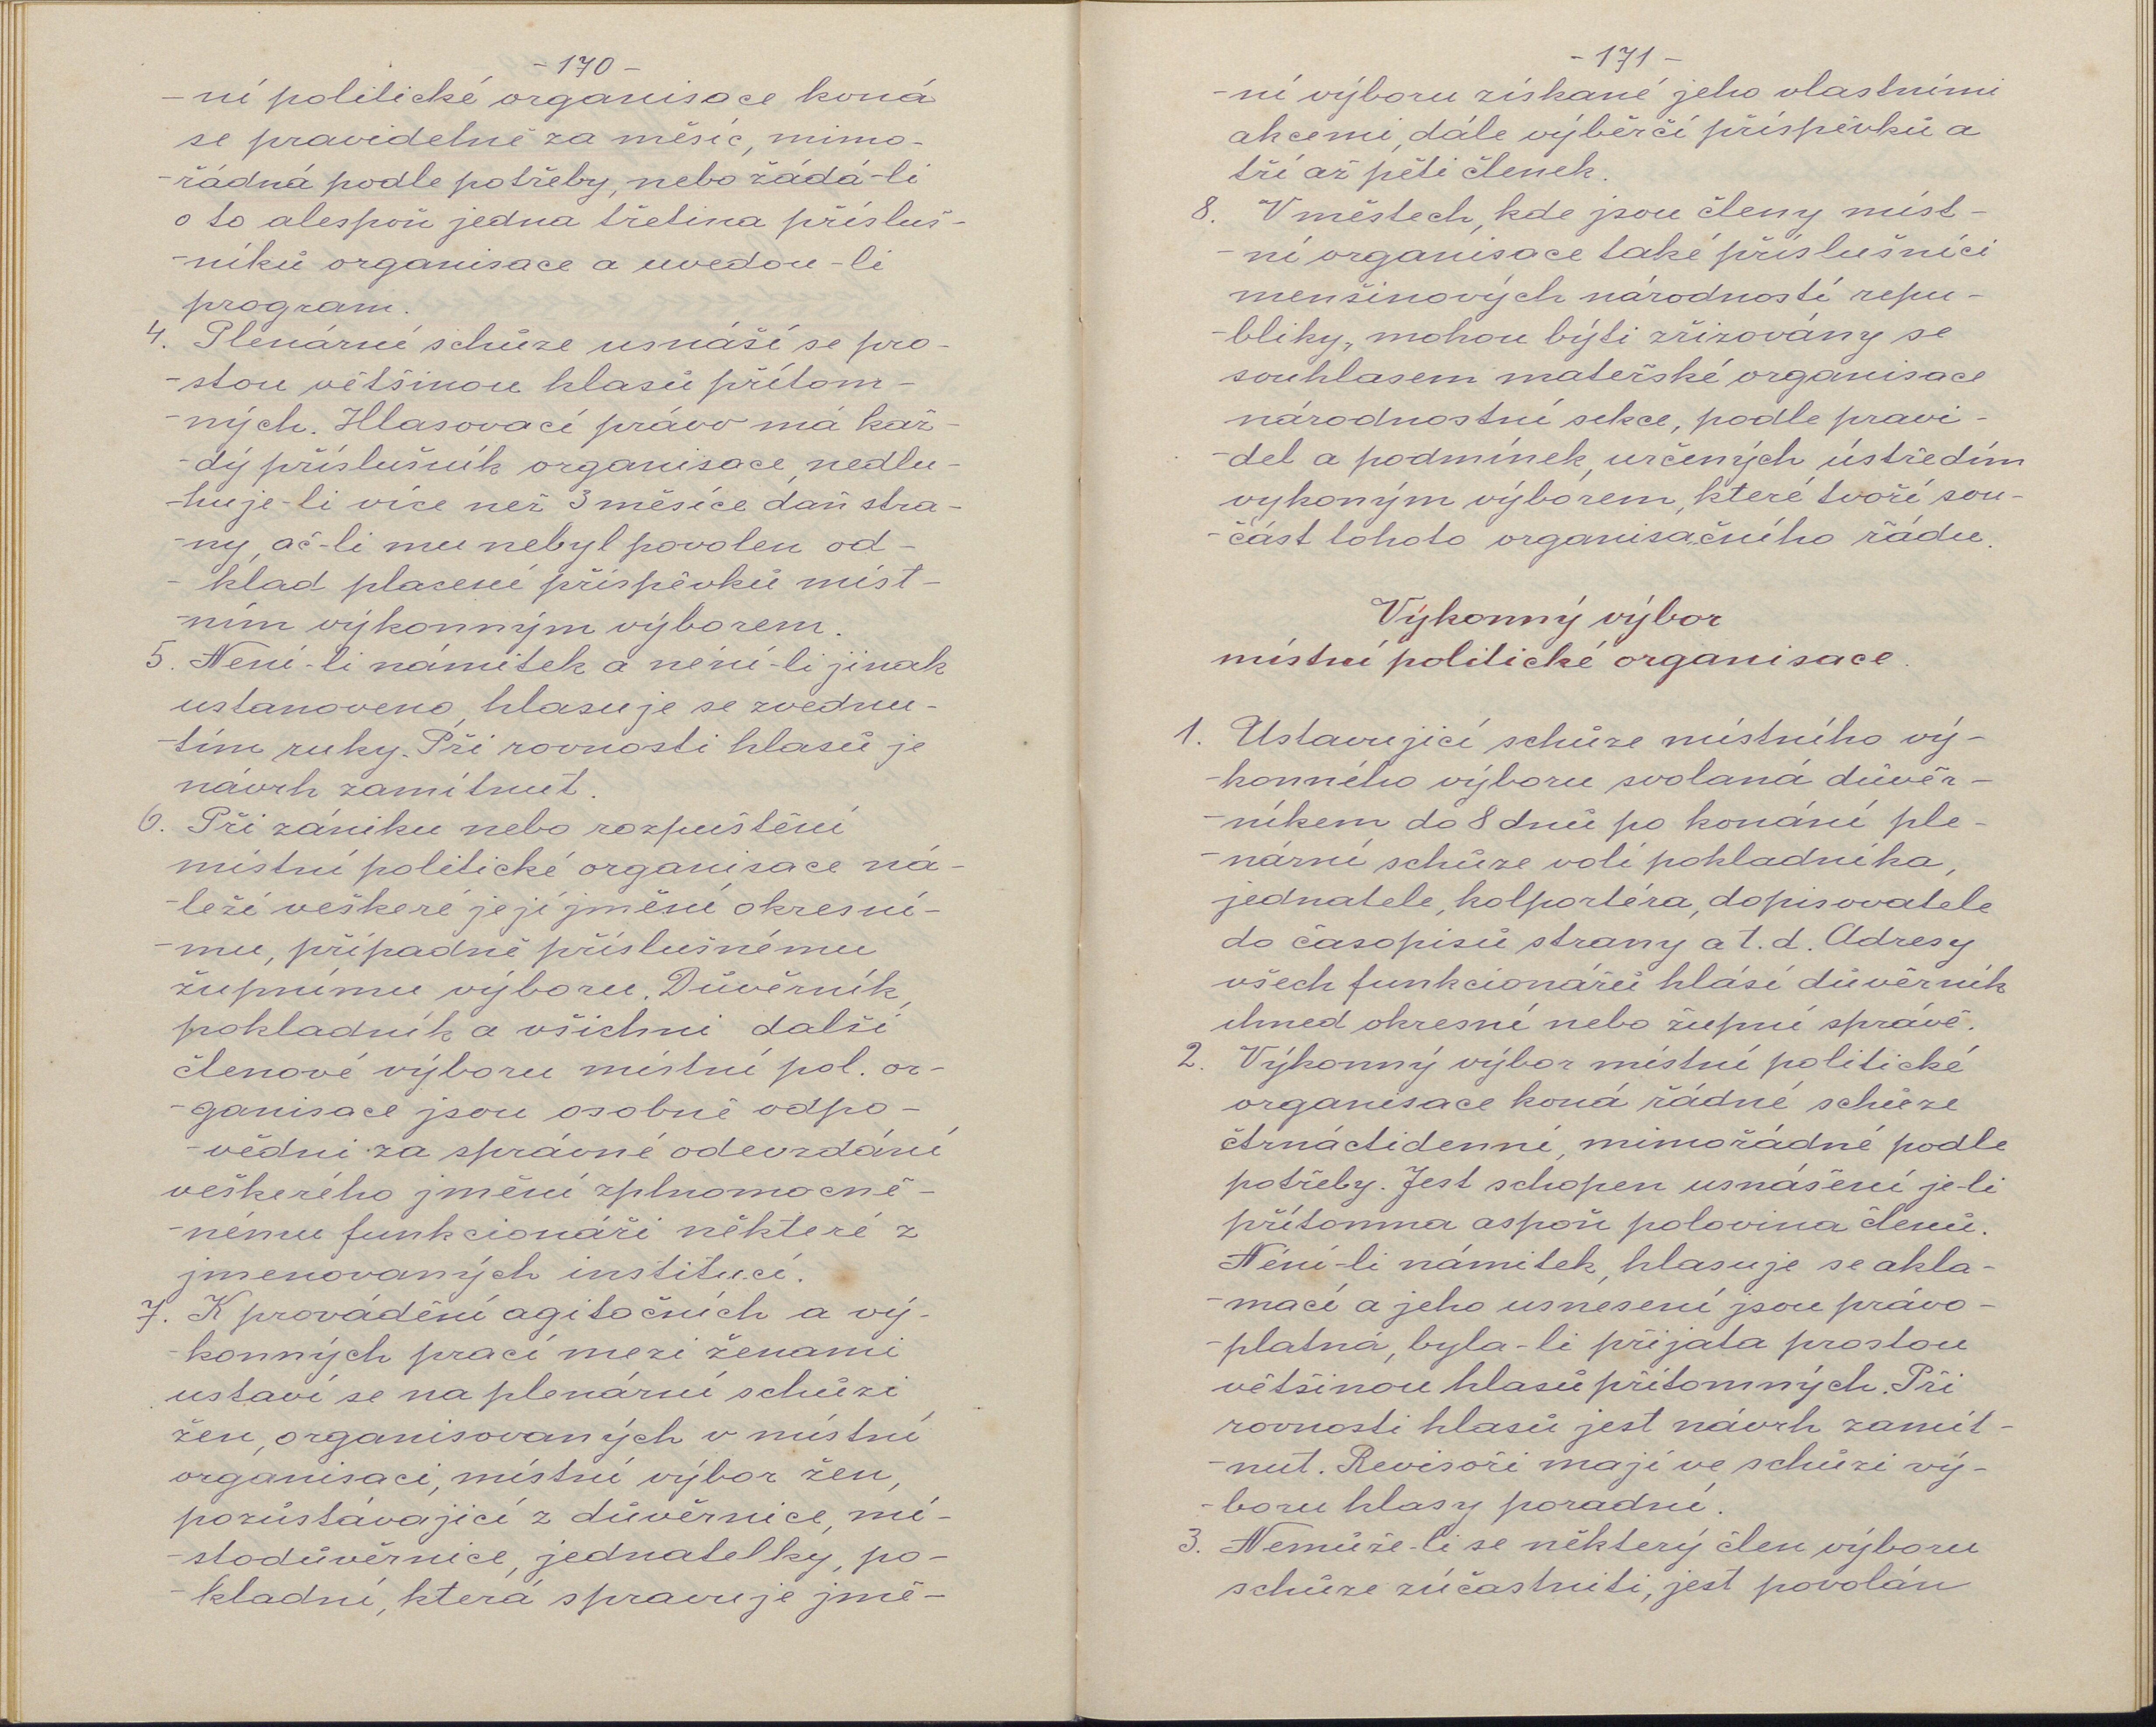 - 170 -
- ní politické organisace koná
se pravidelně za měsíc, mimo-
- řádná podle potřeby, nebo žádá-li
o to alespoň jedna třetina přísluš-
- níků organisace a uvedou-li
program.
4. Plenární schůze usnáší se pro-
- stou většinou hlasů přítom-
- ných. Hlasovací právo má kaž-
- dý příslušník organisace, nedlu-
- huje-li více než 3 měsíce daň stra-
- ny, ač-li mu nebyl povolen od-
- klad placení příspěvků míst-
- ním výkonným výborem.
5. Není-li námitek a není-li jinak
ustanoveno, hlasuje se zvednu-
- tím ruky. Při rovnosti hlasů je
návrh zamítnut.
6. Při zániku nebo rozpuštění
místní politické organisace ná-
- leží veškeré její jmění okresní-
- mu, případně příslušnému
župnímu výboru. Důvěrník,
pokladník a všichni další
členové výboru místní pol. or-
- ganisace jsou osobně odpo-
- vědni za správné odevzdání
veškerého jmění zplnomocně-
- nému funkcionáři některé z
jmenovaných institucí.
7. K provádění agitačních a vý-
- konných prací mezi ženami
ustaví se na plenární schůzi
žen, organisovaných v místní
organisaci, místní výbor žen,
pozůstávající z důvěrnice, mí-
- stodůvěrnice, jednatelky, po-
- kladní, která spravuje jmě-
- 171 -
- ní výboru získané jeho vlastními
akcemi, dále výběrčí příspěvků a
tří až pěti členek.
8. V městech, kde jsou členy míst-
- ní organisace také příslušníci
menšinových národností repu-
- bliky, mohou býti zřizovány se
souhlasem mateřské organisace
národnostní sekce, podle pravi-
- del a podmínek, určených ústředím
vykoným výborem, které tvoří sou-
- část tohoto organisačního řádu.
Výkonný výbor
místní politické organisace.
1. Ustavující schůze místního vý-
- konného výboru svolaná důvěr-
- níkem do 8 dnů po konání ple-
- nární schůze volí pokladníka,
jednatele, kolportéra, dopisovatele
do časopisů strany a t. d. Adresy
všech funkcionářů hlásí důvěrník
ihned okresní nebo župní správě.
2. Výkonný výbor místní politické
organisace koná řádné schůze
čtrnáctidenní, mimořádné podle
potřeby. Jest schopen usnášení je-li
přítomna aspoň polovina členů.
Není-li námitek, hlasuje se akla-
- mací a jeho usnesení jsou právo-
- platná, byla-li přijata prostou
většinou hlasů přítomných. Při
rovnosti hlasů jest návrh zamít-
- nut. Revisoři mají ve schůzi vý-
- boru hlasy poradní.
3. Nemůže-li se některý člen výboru
schůze zúčastniti, jest povolán